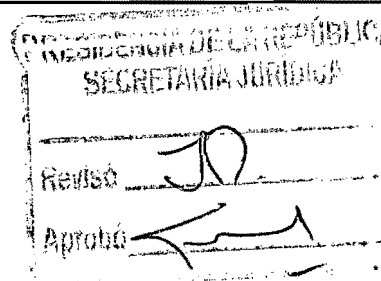 PRESIDENCIA DE LA REPÚBLICA
SECRETARÍA JURÍDICA
Revisó
Aprobó